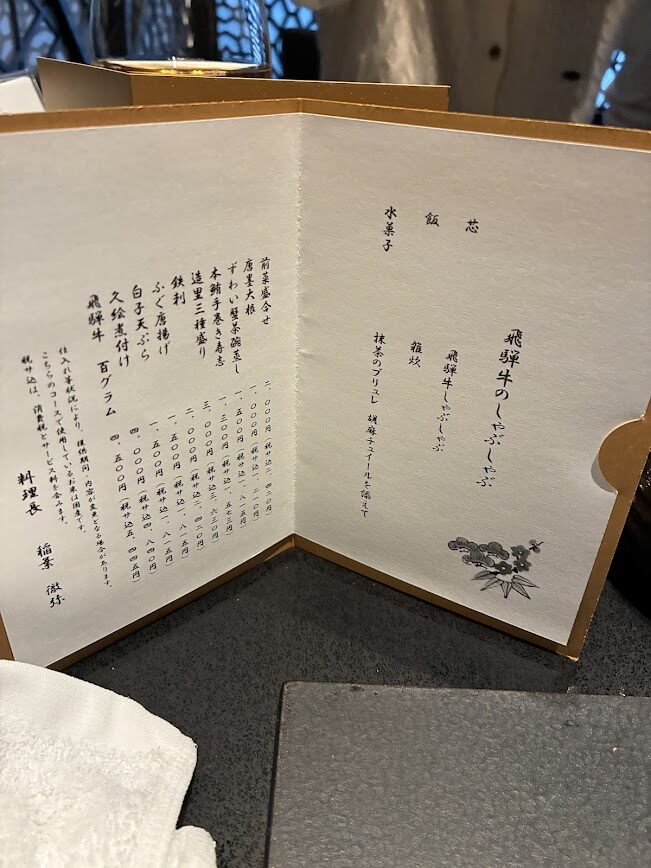 飛騨牛のしゃぶしゃぶ
芯 飛騨牛しゃぶしゃぶ
飯 雑炊
水菓子 抹茶のブリュレ 胡麻チュイールを添えて
前菜盛合せ 二、〇〇〇円(税サ込二、四二〇円)
唐墨大根 一、〇〇〇円(税サ込一、二一〇円)
ずわい蟹茶碗蒸し 一、五〇〇円(税サ込一、八一五円)
本鮪手巻き寿志 一、三〇〇円(税サ込一、五七三円)
造里三種盛り 三、〇〇〇円(税サ込三、六三〇円)
鉄刺 二、〇〇〇円(税サ込二、四二〇円)
ふぐ唐揚げ 一、五〇〇円(税サ込一、八一五円)
白子天ぷら 一、五〇〇円(税サ込一、八一五円)
久絵煮付け 四、〇〇〇円(税サ込四、八四〇円)
飛騨牛 百グラム 四、五〇〇円(税サ込五、四四五円)
仕入れ等状況により、提供期間・内容が変更となる場合があります。
こちらのコースで使用しているお米は国産です。
税サ込は、消費税とサービス料を含みます。
料理長 稲葉 徹弥